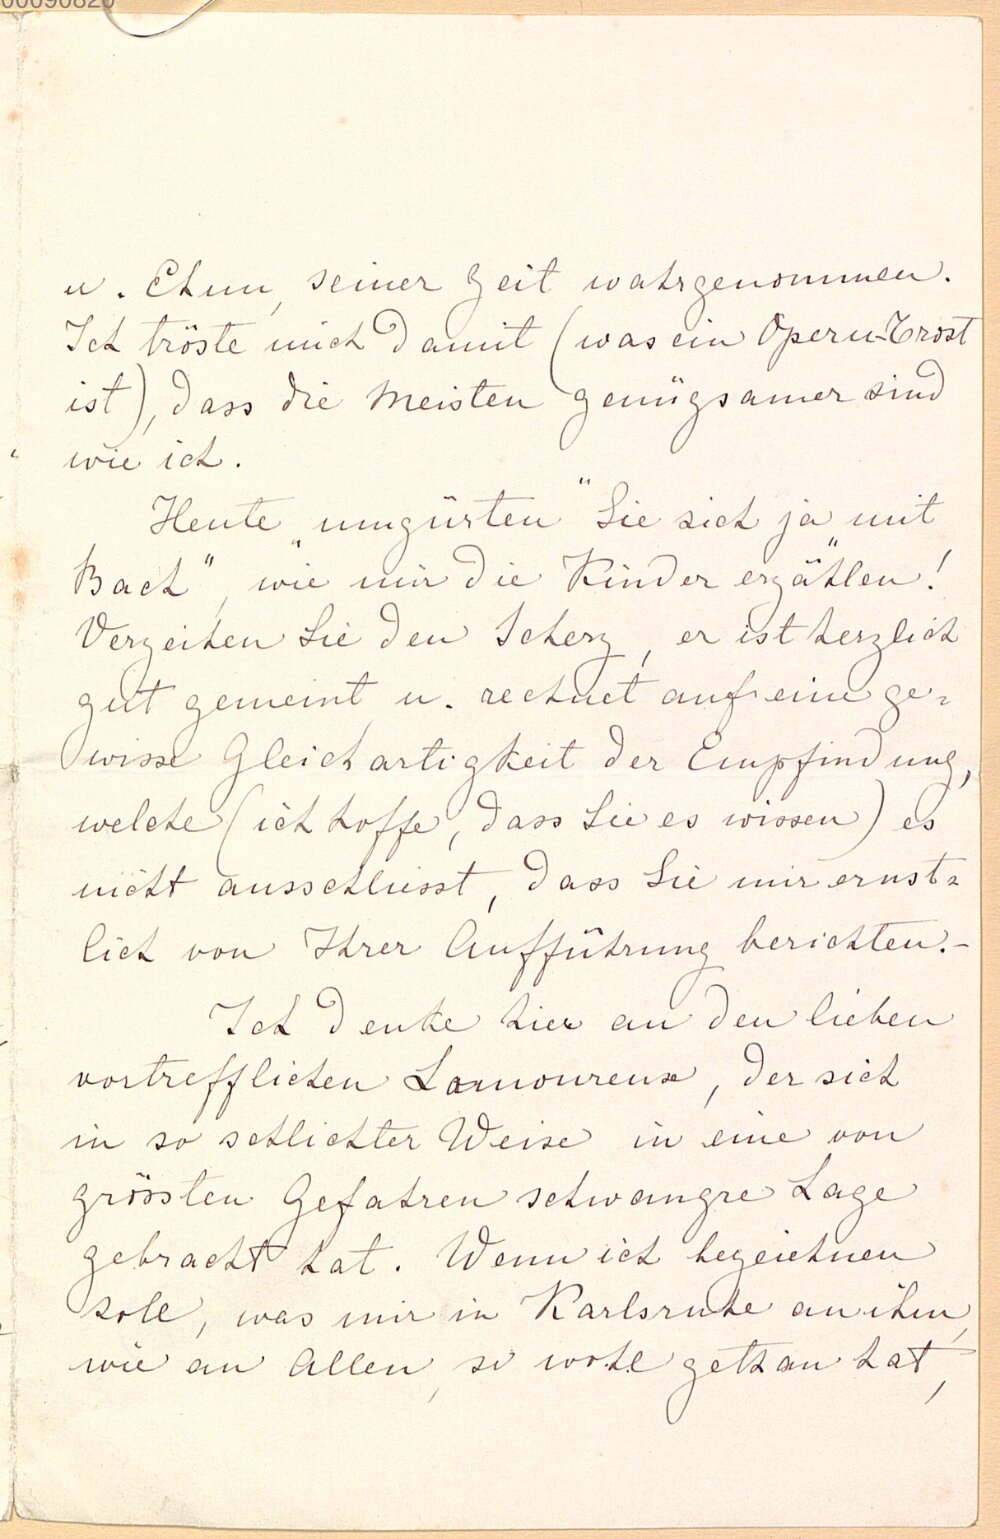 00090820
u. Ehnn, seiner Zeit wahrgenommen.
Ich tröste mich damit (was ein Opern-Trost
ist), dass die Meisten genügsamer sind
wie ich.
Heute „umgürten" Sie sich ja „mit
Bach", wie mir die Kinder erzählen!
Verzeihen Sie den Scherz, er ist herzlich
gut gemeint u. rechnet auf eine ge-
wisse Gleichartigkeit der Empfindung,
welche (ich hoffe, dass Sie es wissen) es
nicht ausschliesst, dass Sie mir ernst-
lich von Ihrer Aufführung berichten.-
Ich denke hier an den lieben
vortrefflichen Lamoureux, der sich
in so schlichter Weise in eine von
grössten Gefahren schwangre Lage
gebracht hat. Wenn ich bezeichnen
soll, was mir in Karlsruhe an ihm,
wie an Allen, so wohl gethan hat,